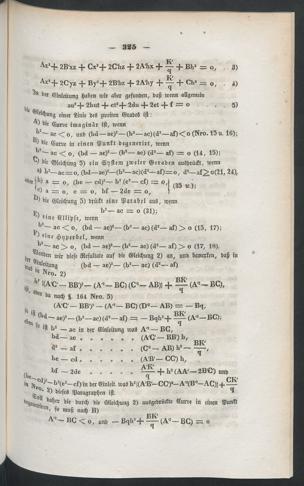 — 325 —
Ax² + 2B'xz + Cx² + 2C'hz + 2A'hx + K'/q + Bh² = o, . 3)
Ax² + 2C'yz + By² + 2B'hz + 2A'hy + K'/q + Ch² = o, . 4)
In der Einleitung haben wir aber gefunden, daß wenn allgemein
au² + 2but + ct² + 2du + 2et + f = o . . . . 5)
die Gleichung einer Linie des zweiten Grades ist:
A) die Curve imaginär ist, wenn
b² — ac < o, und (bd — ae)² — (b² — ac) (d² — af) < o (Nro. 15 u. 16);
B) die Curve in einen Punkt degenerirt, wenn
b² — ac < o, (bd — ae)² — (b² — ac) (d² — af) = o (14, 15);
C) die Gleichung 5) ein System zweier Geraden ausdrückt, wenn
a) b² — ac = o, (bd — ae)² — (b² — ac)(d² — af) = o, d² — af ≥ o (21, 24),
oder b) a = o, (be — cd)² — b² (e² — cf) = o,
c) a = o, c = o, bf — 2de = o, (25 u.);
D) die Gleichung 5) drückt eine Parabel aus, wenn
b² — ac = o (31);
E) eine Ellipse, wenn
b² — ac < o, (bd — ae)² — (b² — ac) (d² — af) > o (15, 17);
F) eine Hyperbel, wenn
b² — ac > o, (bd — ae)² — (b² — ac) (d² — af) > o (17, 18).
Wenden wir diese Resultate auf die Gleichung 2) an, und bemerken, daß in
der Einleitung (bd — ae)² — (b² — ac) (d² — af)
was in Nro. 2)
h² [(A'C' — BB')² — (A'² — BC) (C'² — AB)] + BK'/q (A'² — BC),
ist, oder da nach §. 164 Nro. 5)
(A'C' — BB')² — (A'² — BC) (C'² — AB) = — Bq,
so ist (bd — ae)² — (b² — ac) (d² — af) = — Bqh² + BK'/q (A'² — BC);
eben so ist b² — ac in der Einleitung was A'² — BC,
bd — ae . . . . . . . (A'C' — BB') h,
d² — af . . . . . . . (C'² — AB) h² — BK'/q,
be — cd . . . . . . . (A'B' — CC') h,
bf — 2de . . . . . . . A'K'/q + h² (AA' — 2B'C') und
(be — cd)² — b² (e² — cf) in der Einleit. was h² [(A'B' — CC')² — A'² (B'² — AC)] + CK'/q
in Nro. 2) dieses Paragraphen ist.
Soll daher die durch die Gleichung 2) ausgedrückte Curve in einen Punkt
degeneriren, so muß nach B)
A'² — BC < o, und — Bqh² + BK'/q (A'² — BC) = o